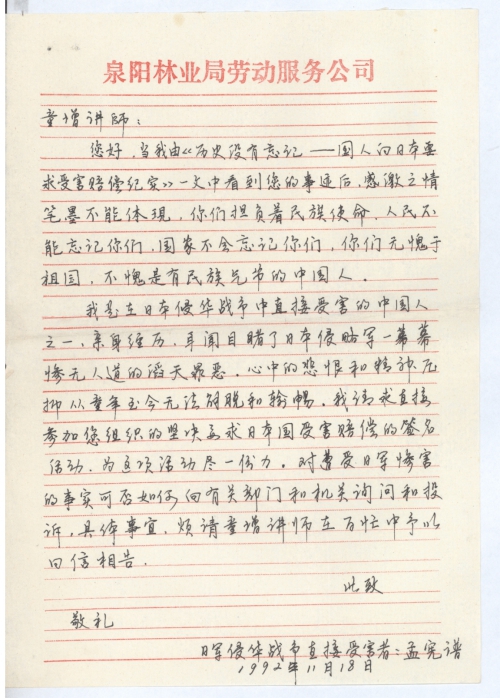 泉阳林业局劳动服务公司
童增讲师：
您好，当我由《历史没有忘记——国人向日本要
求受害赔偿纪实》一文中看到您的事迹后，感激之情
笔墨不能体现，你们担负着民族使命，人民不
能忘记你们，国家不会忘记你们，你们无愧于
祖国，不愧是有民族气节的中国人。
我是在日本侵华战争中直接受害的中国人
之一，亲身经历，耳闻目睹了日本侵略军一幕幕
惨无人道的滔天罪恶。心中的悲恨和精神压
抑从童年至今无法解脱和输畅。我请求直接
参加您组织的坚决要求日本国受害赔偿的签名
活动，为这项活动尽一份力。对遭受日军惨害
的事实可否如何向有关部门和机关询问和投
诉，具体事宜，烦请童增讲师在百忙中予以
回信相告。
此致
敬礼
日军侵华战争直接受害者：孟宪谱
1992年11月18日